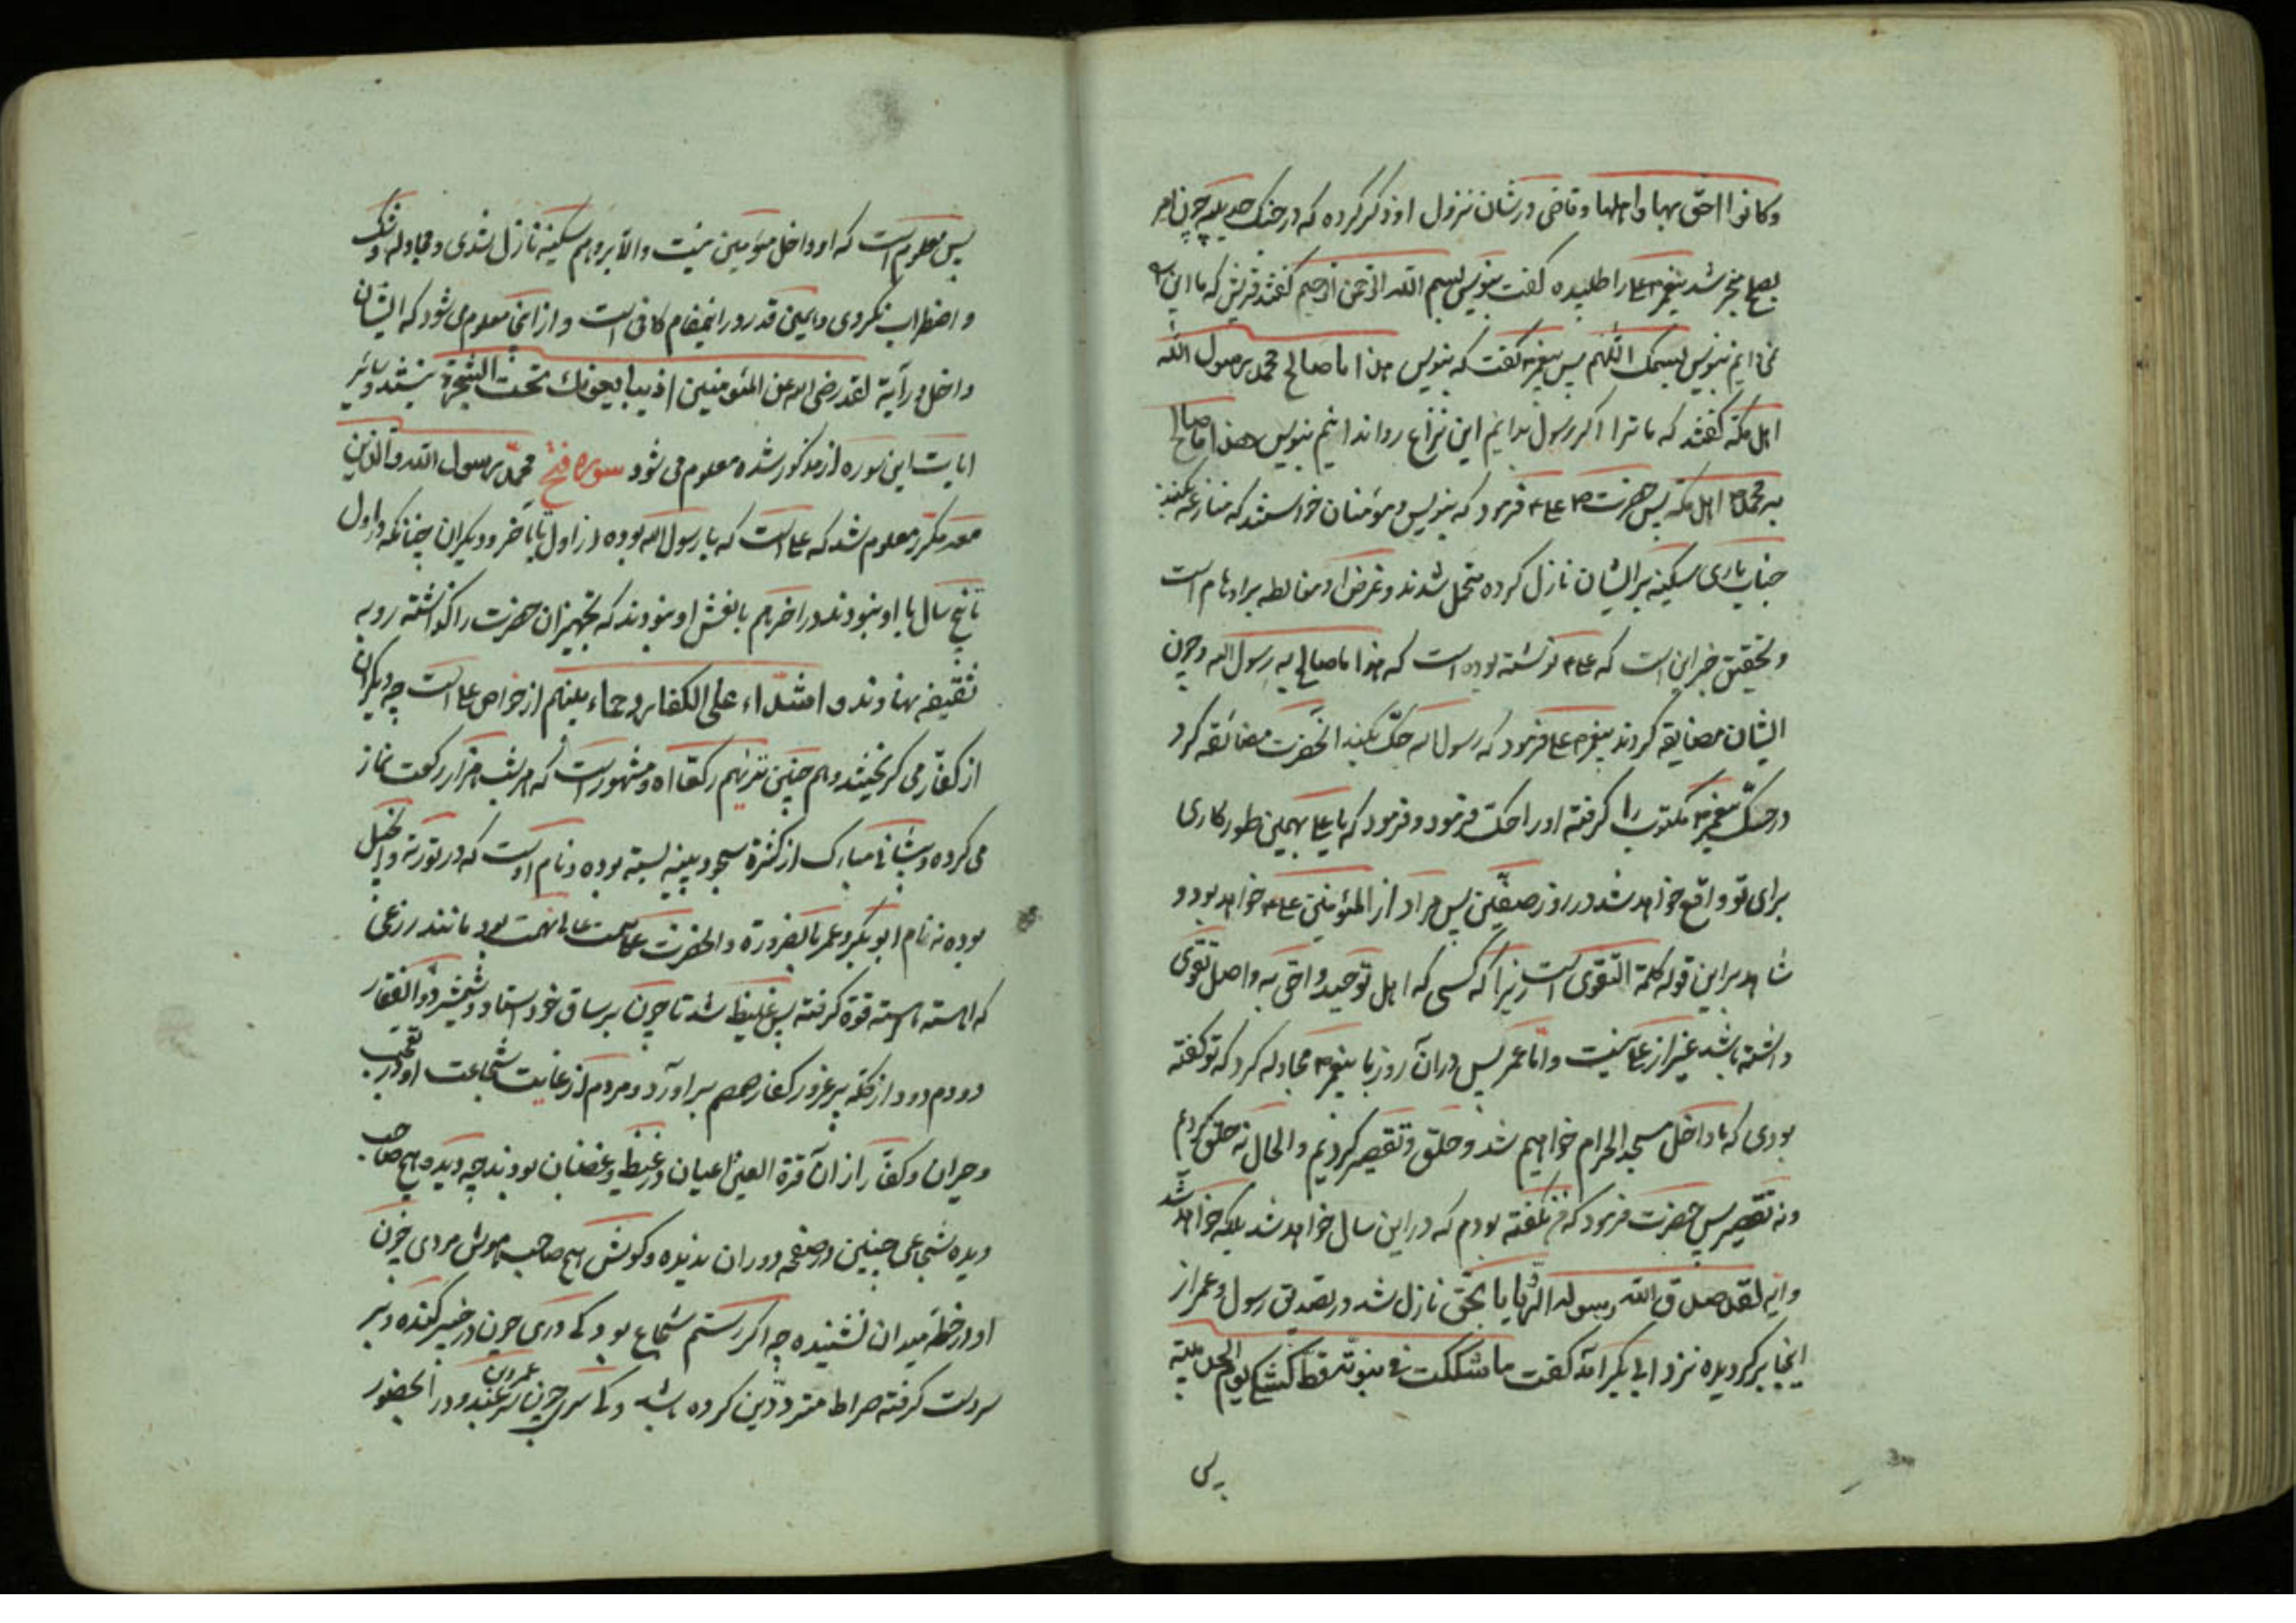 وكانوا احق بها واهلها وقاضی در شان نزول او ذکر کرده که در جنک حدیبیه چون امر
بصلح منجر شد پیغمبر ص علی را طلبیده کفت بنویس بسم الله الرحمن الرحیم کفتند قریش که ما این را
نمی دانیم بنویس بسمک اللهم پس پیغمبر ص کفت که بنویس هذا ما صالح محمد رسول الله
اهل مکه کفتند که ما ترا اکر رسول بدانیم این نزاع روا ندانیم بنویس هذا ما صالح
به محمد اهل مکه پس حضرت ص علی ع فرمود که بنویس و مؤمنان خواستند که منازعه کنند
جناب باری سکینه بر ایشان نازل کرده متحمل شدند و غرض او مغالطه بر اوهام است
و تحقیق خبر این است که علی ع نوشته بوده است که هذا ما صالح به رسول الله و چون
ایشان مضایقه کردند پیغمبر ص علی فرمود که رسول الله حک بکنید انحضرت مضائقه کرد
در حک پیغمبر ص مکتوب را کرفته او را حک فرمود و فرمود که یا علی بهمین طور کاری
برای تو واقع خواهد شد در روز صفین پس مراد از المؤمنین علی ع خواهد بود و
شاهد بر این قوله کلمة التقوی است زیرا که کسی که اهل توحید و احق به و اصل تقوی
داشته باشد غیر از علی نیست و اما عمر پس در آن روز با پیغمبر ص مجادله کرد که تو کفته
بودی که ما داخل مسجد الحرام خواهیم شد و حلق و تقصیر کردیم و الحال نه حلق کردیم
و نه تقصیر پس حضرت فرمود که من نکفته بودم که در این سال خواهد شد بلکه خواهد شد
و ایه لقد صدق الله رسوله الرؤیا بالحق نازل شد در تصدیق رسول و عمر از
انجا برکردیده نزد ابی بکر آمد کفت ما شککت فی نبوته قط کشکی یوم الحدیبیه
پس
پس معلوم است که او داخل مؤمنین نیست و الا بر او هم سکینه نازل شدی و مجادله و شک
و اضطراب نکردی و همین قدر در اینمقام کافی است و از اینجا معلوم می شود که ایشان
داخل در آیة لقد رضی الله عن المئومنین اذ یبایعونک تحت الشجرة نیستند و سائر
ایات این سوره از مذکور شده معلوم می شود سوره فتح محمد رسول الله والذین
معه مکرر معلوم شد که علی است که با رسول الله بوده از اول تا باخر و دیکران چنانکه در اول
تا پنج سال با او نبودند در اخر هم با نعش او نبودند که تجهیز ان حضرت را کذاشته رو به
ثقیفه نهادند و اشداء علی الکفار رحماء بینهم از خواص علی است چه دیکران
از کفار می کریختند و هم چنین تریهم رکعا اه و مشهور است که هر شب هزار رکعت نماز
می کرده و پیشانی مبارک از کثرة سجود پینه بسته بوده و نام اوست که در توریة و انجیل
بوده نه نام ابو بکر و عمر بالضرورة و انحضرت عالی همت بود مانند زرعی
که اهسته اهسته قوة کرفته پس غلیظ شد تا چون بر ساق خود استاد و شمشیر ذو الفقار
دودم دود از کله پر غرور کفار خصم براورد و مردم از غایت شجاعت او در تعجب
و حیران و کفار از ان قرة العین اعیان در غیظ و غضبان بودند چه دیده هیچ صاحب
دیده شجاعی چنین در صفحه دوران ندیده و کوش هیچ صاحب هوش مردی چون
او در خطه میدان نشنیده چه اکر رستم شجاع بود کی دری چون در خیبر کنده و بر
سر دست کرفته صراط متردّدین کرده باشد و کی سری چون سر عمرو بن عبدود در الحضور